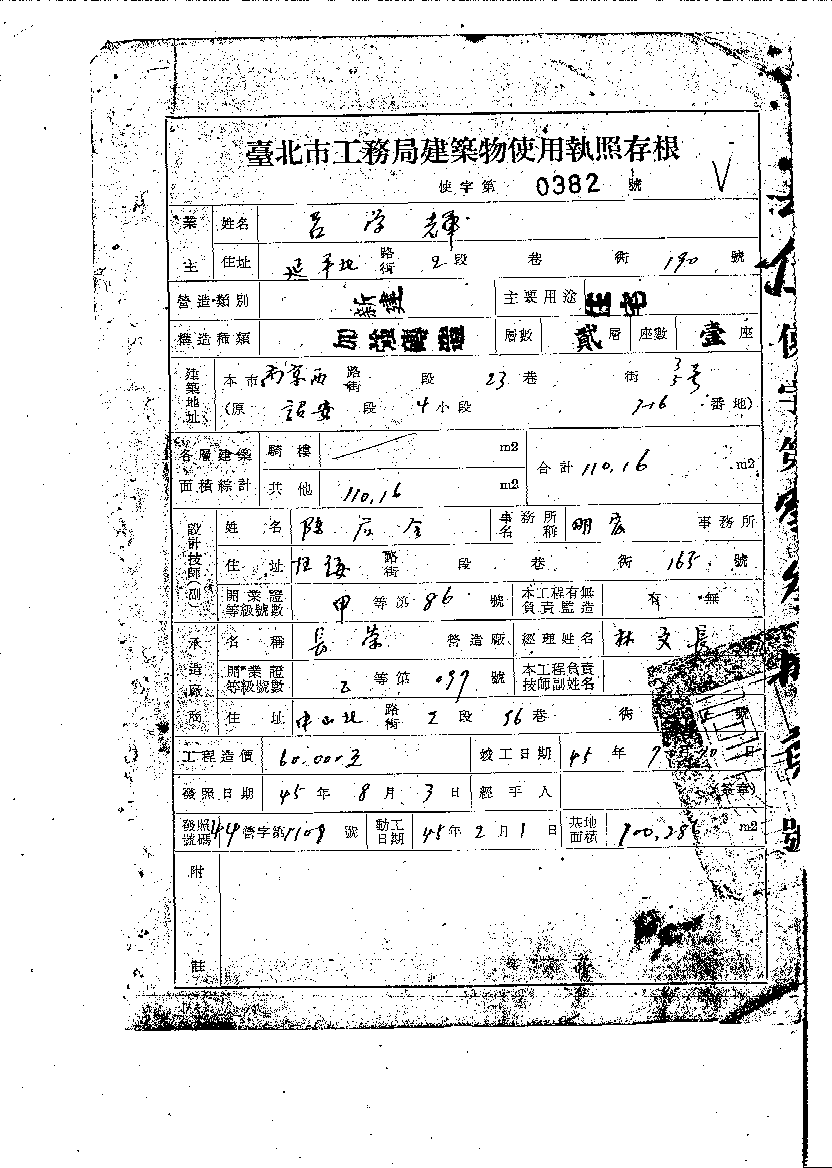 臺北市工務局建築物使用執照存根
使字第 0382 號
業主 姓名 呂学
住址 延平北 路街 2段 巷 街 190 號
營造類別 新建 主要用途 住宅
構造種類 加強磚造 層數 貳層 座數 壹座
建築地址 本市 南京西 路街 段 23巷 街 3 5号
(原 詔安 段 4小段 316 番地)
各層建築面積綜計 騎樓 m2 合計 110,16 m2
其他 110.16 m2
設計技師(副) 姓名 陳 事務所名稱 明宏 事務所
住址 路街 段 巷 街 165 號
開業證等級號數 甲 等第 86 號 本工程有無負責監造 有 無
承造廠商 名稱 長榮 營造廠 經理姓名 林文長
開業證等級號數 乙 等第 097 號 本工程負責技師副姓名
住址 中山北 路街 2段 96巷 街 號
工程造價 60.000元 竣工日期 45年7 日
發照日期 45年8月3日 經手人 (簽章)
發照號碼 44營字第1109號 動工日期 45年2月1日 基地面積 m2
附註
使字第 號